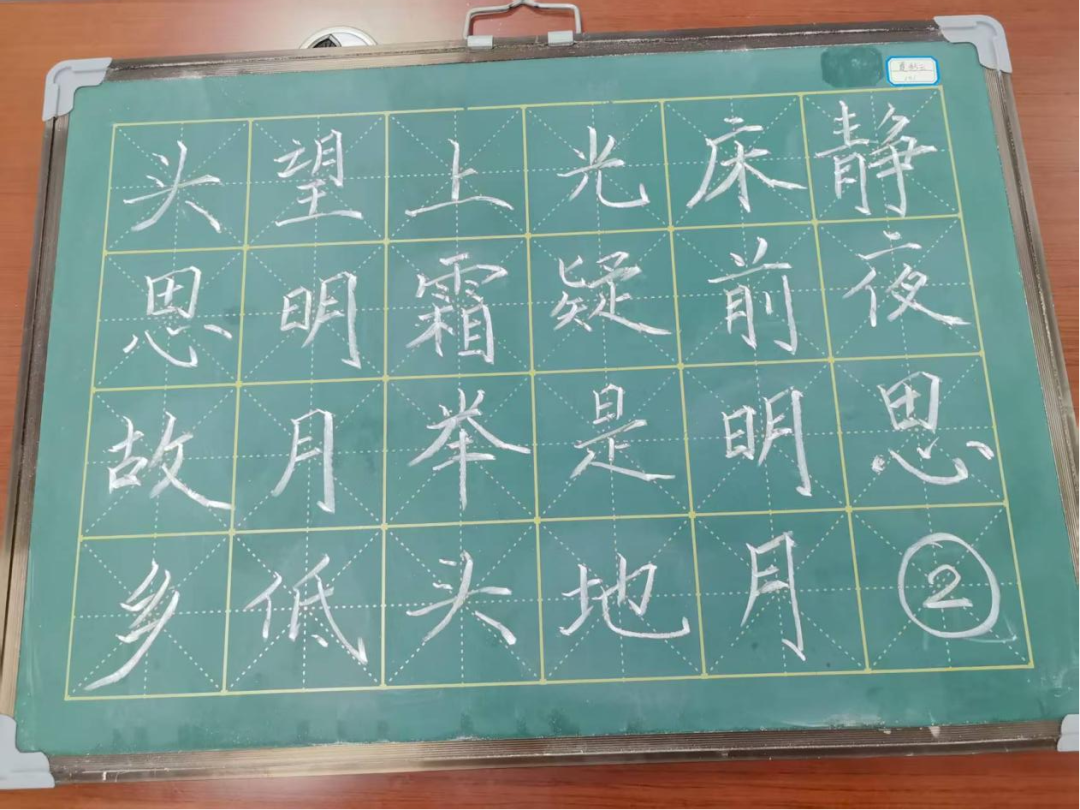 静夜思②
床前明月
光疑是地
上霜举头
望明月低
头思故乡